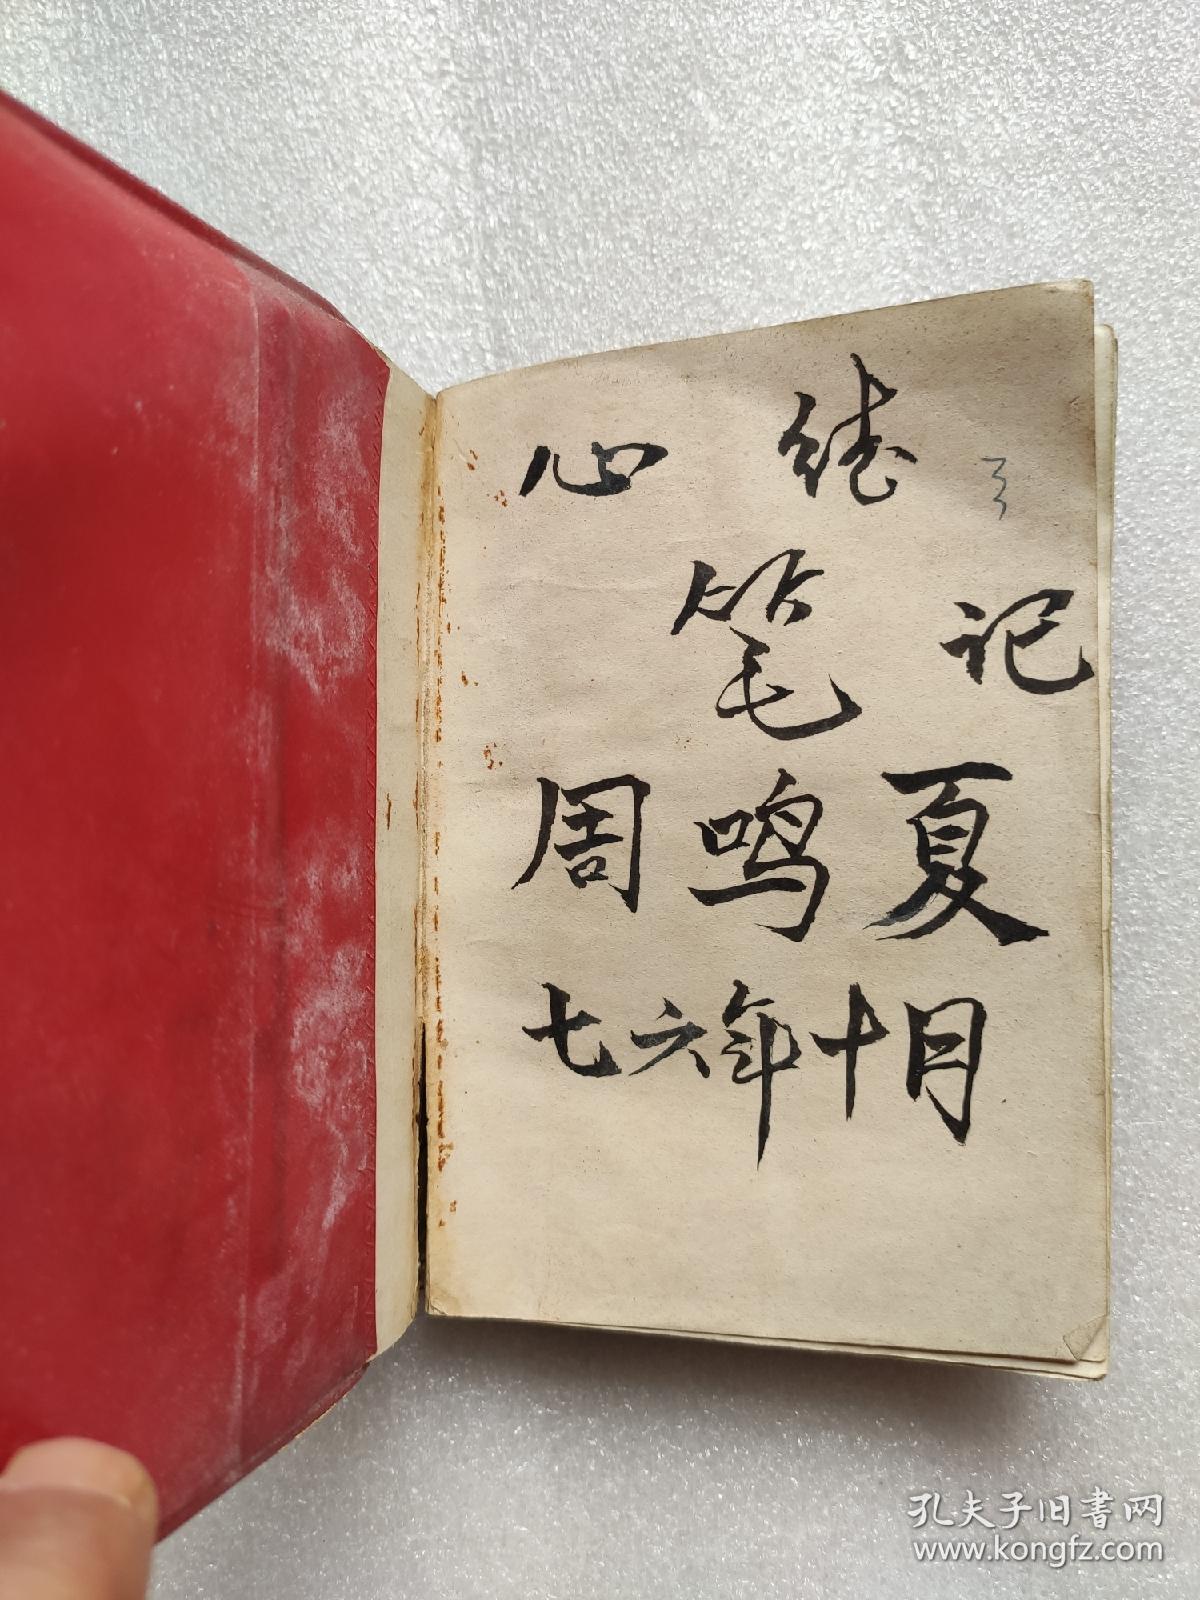 心
笔 记
周 鸣 夏
七六年十月
孔夫子旧書网
www.kongfz.com